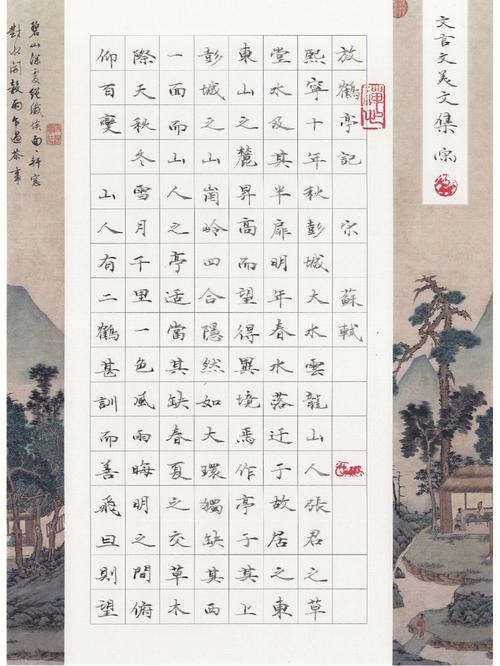 文言文美文集 宋
放鶴亭記 宋 蘇軾
熙寧十年秋彭城大水雲龍山人張君之草
堂水及其半扉明年春水落迁于故居之東
東山之麓昇高而望得異境焉作亭于其上
彭城之山崗岭四合隱然如大環獨缺其西
一面而山人之亭適當其缺春夏之交草木
際天秋冬雪月千里一色風雨晦明之間俯
仰百變 山人有二鶴甚訓而善飛旦則望
碧山深處絕纖埃面〻軒窗
對水開穀雨乍過茶事